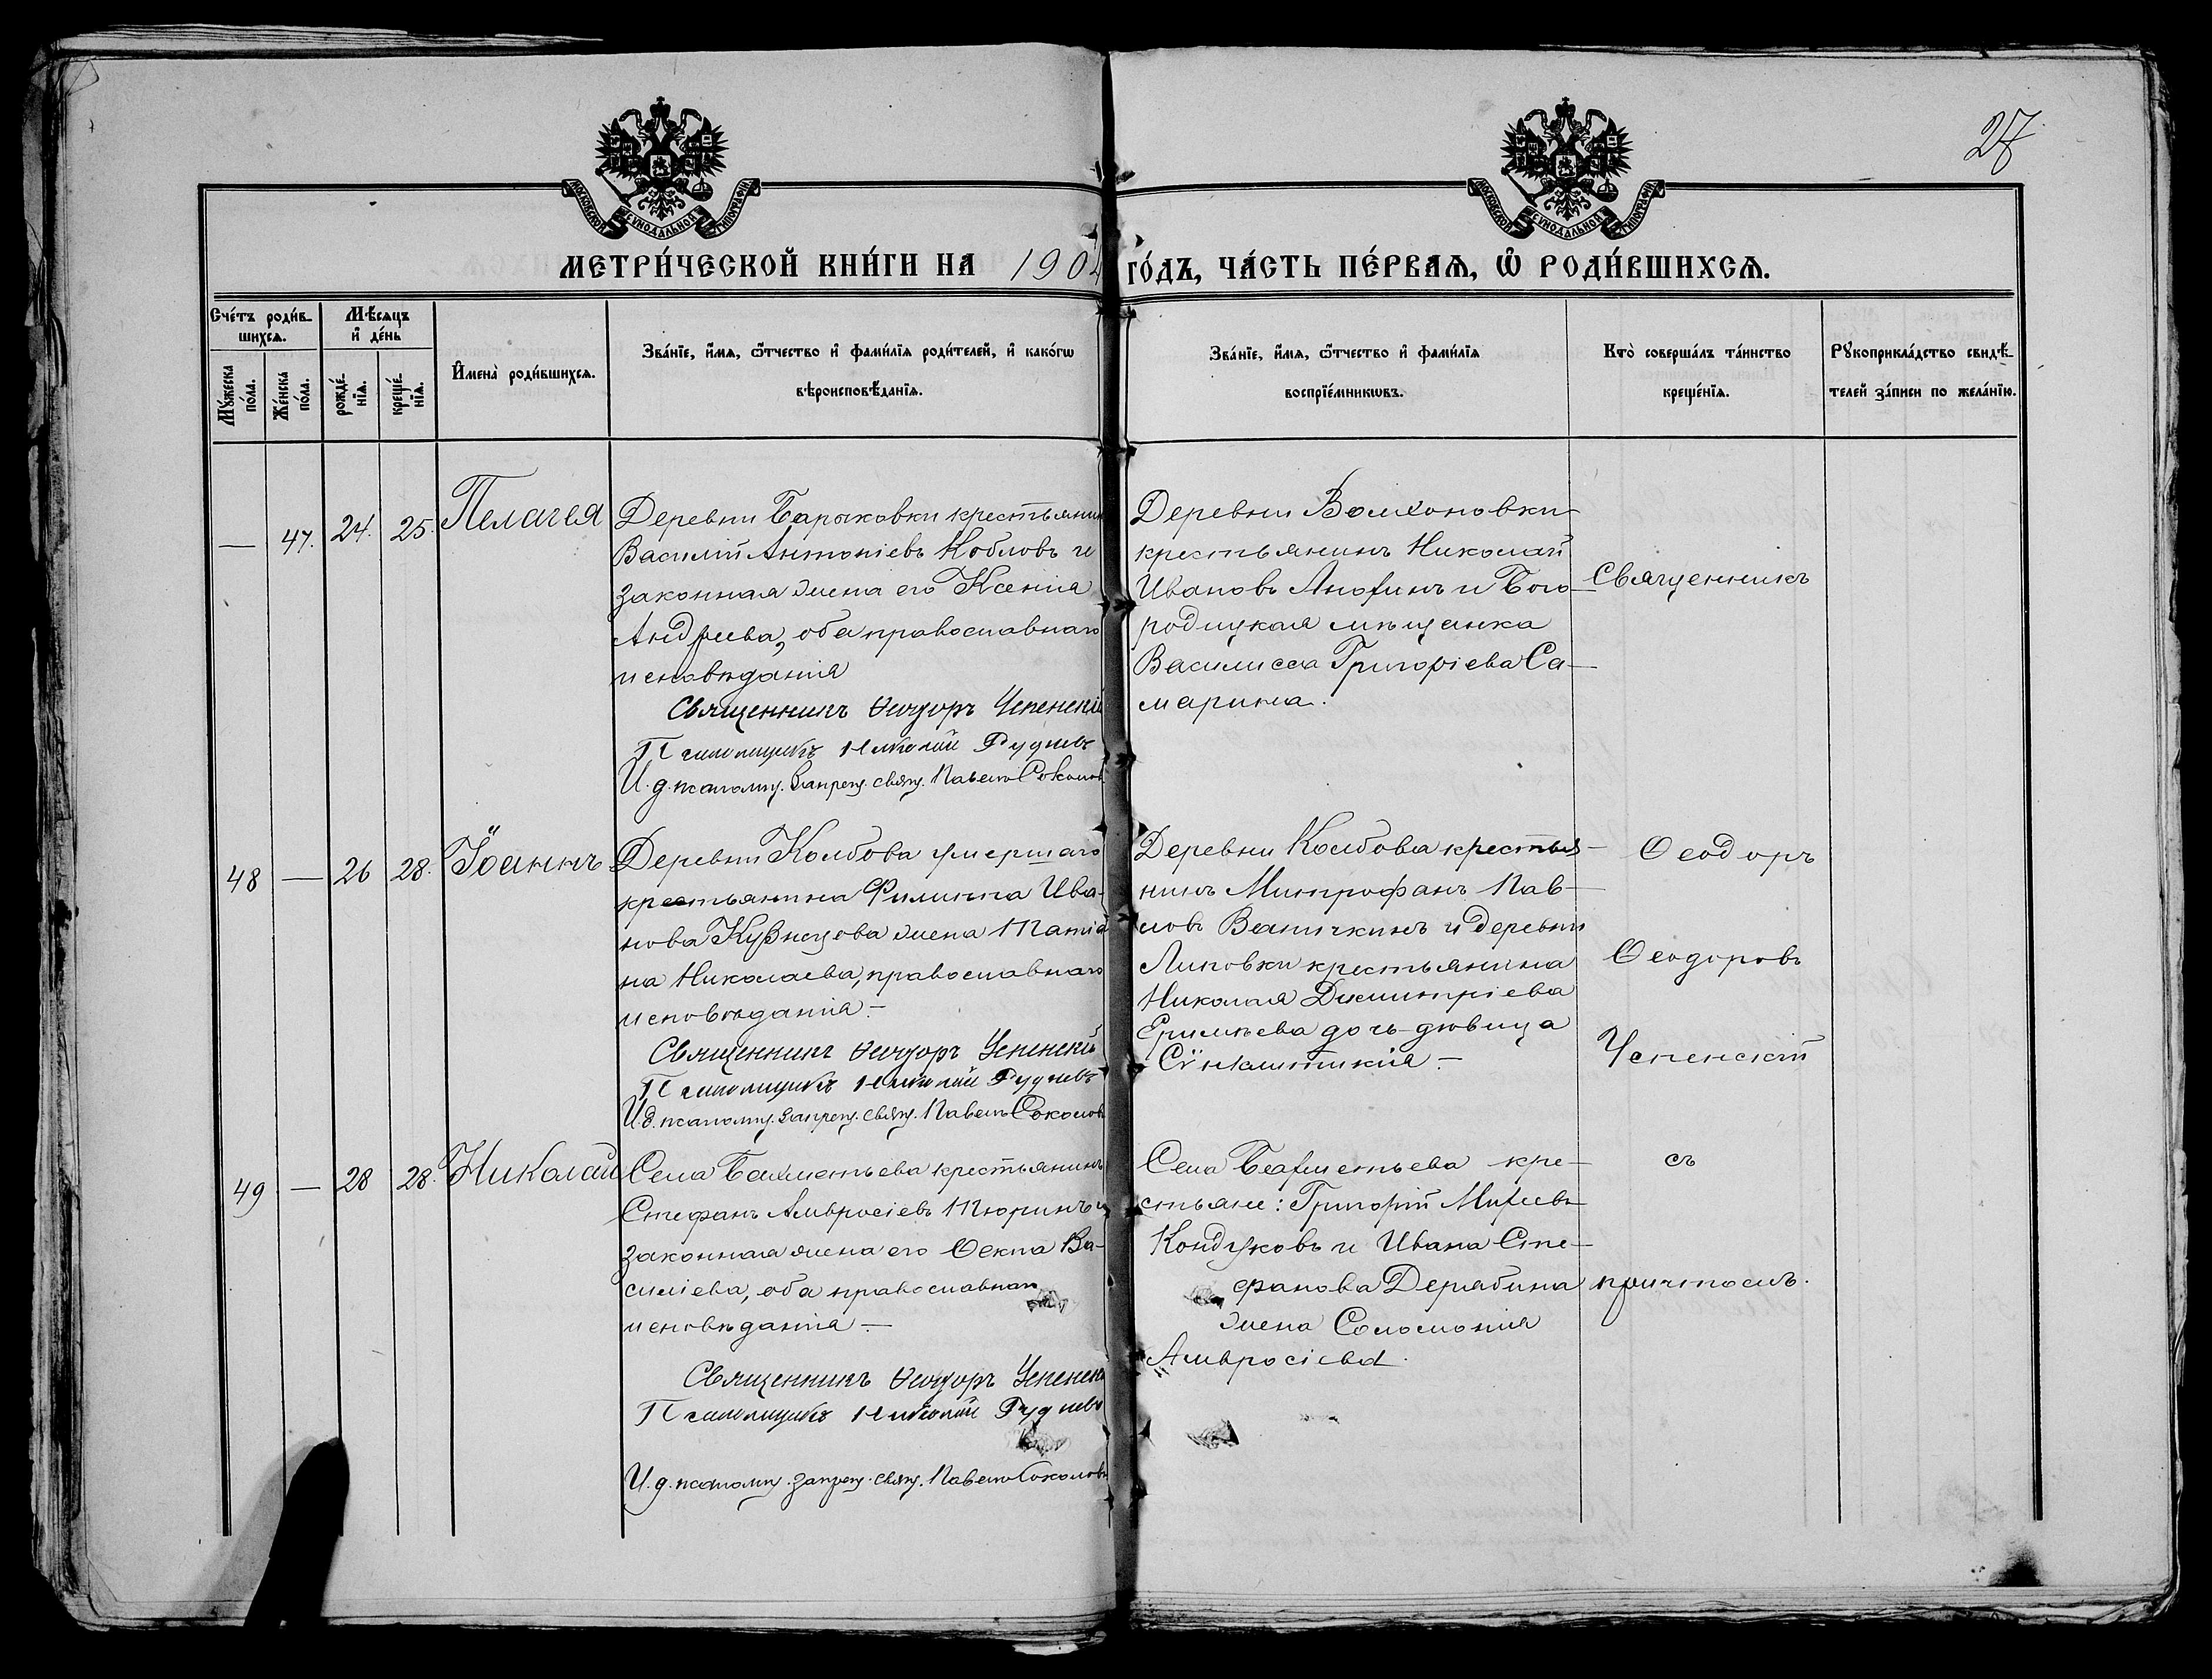 27
МОСКОВСКОЙ СѴНОДАЛЬНОЙ ТИПОГРАФІИ
МОСКОВСКОЙ СѴНОДАЛЬНОЙ ТИПОГРАФІИ
МЕТРИ́ЧЕСКОЙ КНИ́ГИ НА 1904 ГО́ДЪ, ЧА́СТЬ ПЕ́РВАѦ, Ѡ҆ РОДИ́ВШИХСѦ.
Сче́тъ роди́в-
шихсѧ.
Мѣ́сѧцъ
и҆ де́нь
Мꙋ́жеска
по́ла.
Же́нска
по́ла.
рожде́-
нїѧ.
креще́-
нїѧ.
И҆мена̀ роди́вшихсѧ.
Зва́нїе, и҆́мѧ, ѻ҆́тчество и҆ фами́лїѧ роди́телей, и҆ како́гѡ
вѣроисповѣ́данїѧ.
Зва́нїе, и҆́мѧ, ѻ҆́тчество и҆ фами́лїѧ
воспрїе́мникѡвъ.
Кто̀ соверша́лъ та́инство
креще́нїѧ.
Рꙋкоприкла́дство свидѣ́-
телей за́писи по жела́нїю.
— 47. 24. 25. Пелагея
Деревни Барыковки крестьянинъ
Василій Антоніевъ Кобловъ и
законная жена его Ксенія
Андреева, оба православнаго
исповѣданія
Священникъ Ѳеодоръ Успенскій
Псаломщикъ Николай Рудневъ
И. д. псаломщ. запрещ. свящ. Павелъ Соколовъ
Деревни Волхоновки
крестьянинъ Николай
Ивановъ Анохинъ и Бого-
родицкая мѣщанка
Василисса Григоріева Са-
марина.
Священникъ
48 — 26 28. Іоаннъ
Деревни Колбова умершаго
крестьянина Филиппа Ива-
нова Кузнецова жена Татіа
на Николаева, православнаго
исповѣданія —
Священникъ Ѳеодоръ Успенскій
Псаломщикъ Николай Рудневъ
И. д. псаломщ. запрещ. свящ. Павелъ Соколовъ
Деревни Колбова крестья-
нинъ Митрофанъ Пав-
ловъ Ваничкинъ и деревни
Липовки крестьянина
Николая Димитріева
Еримѣева дочь-дѣвица
Сѵнклитикія —
Ѳеодоръ
Ѳеодоровъ
Успенскій
49 — 28 28. Николай
Села Бахметьева крестьянинъ
Стефанъ Амвросіевъ Тюринъ и
законная жена его Ѳекла Ва-
силіева, оба православнаго
исповѣданія —
Священникъ Ѳеодоръ Успенскій
Псаломщикъ Николай Рудневъ
И. д. псаломщ. запрещ. свящ. Павелъ Соколовъ
Села Бахметьева кре-
стьяне: Григорій Михеевъ
Кондуковъ и Ивана Сте-
фанова Дерябина
жена Соломонія
Амвросіева.
съ
причтомъ.